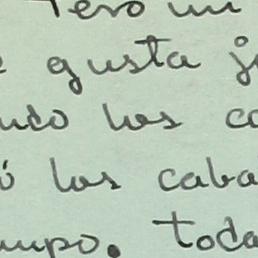 Pero un
e gusta j
ndo los ca
ó los caba
mpo. toda